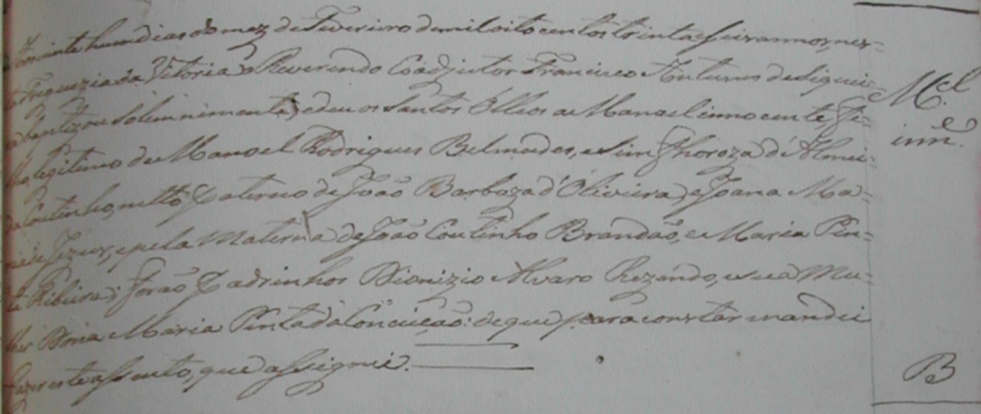 Aos vinte hum dias do mez de Fevereiro de mil oito centos trinta e seis annos, nes-
ta Freguezia da Vitoria o Reverendo Coadjutor Francisco Antunes de Siquei-
ra baptizou solemnemente, e deu os Santos Olleos a Manoel innocente, fi-
lho legitimo de Manoel Rodrigues Belmudes, e Simphoroza d'Almei-
da Coutinho, netto Paterno de João Barboza d'Oliveira, e Joana Ma-
ria de Jezus, e pela Materna de João Coutinho Brandão, e Maria Pin-
ta Ribeira; forão Padrinhos Dionizio Alvaro Rezendo, e sua Mu-
lher Dona Maria Pinta da Conceição: de que para constar mandei
fazer este assento, que assignei.
M.el
inn.e
B